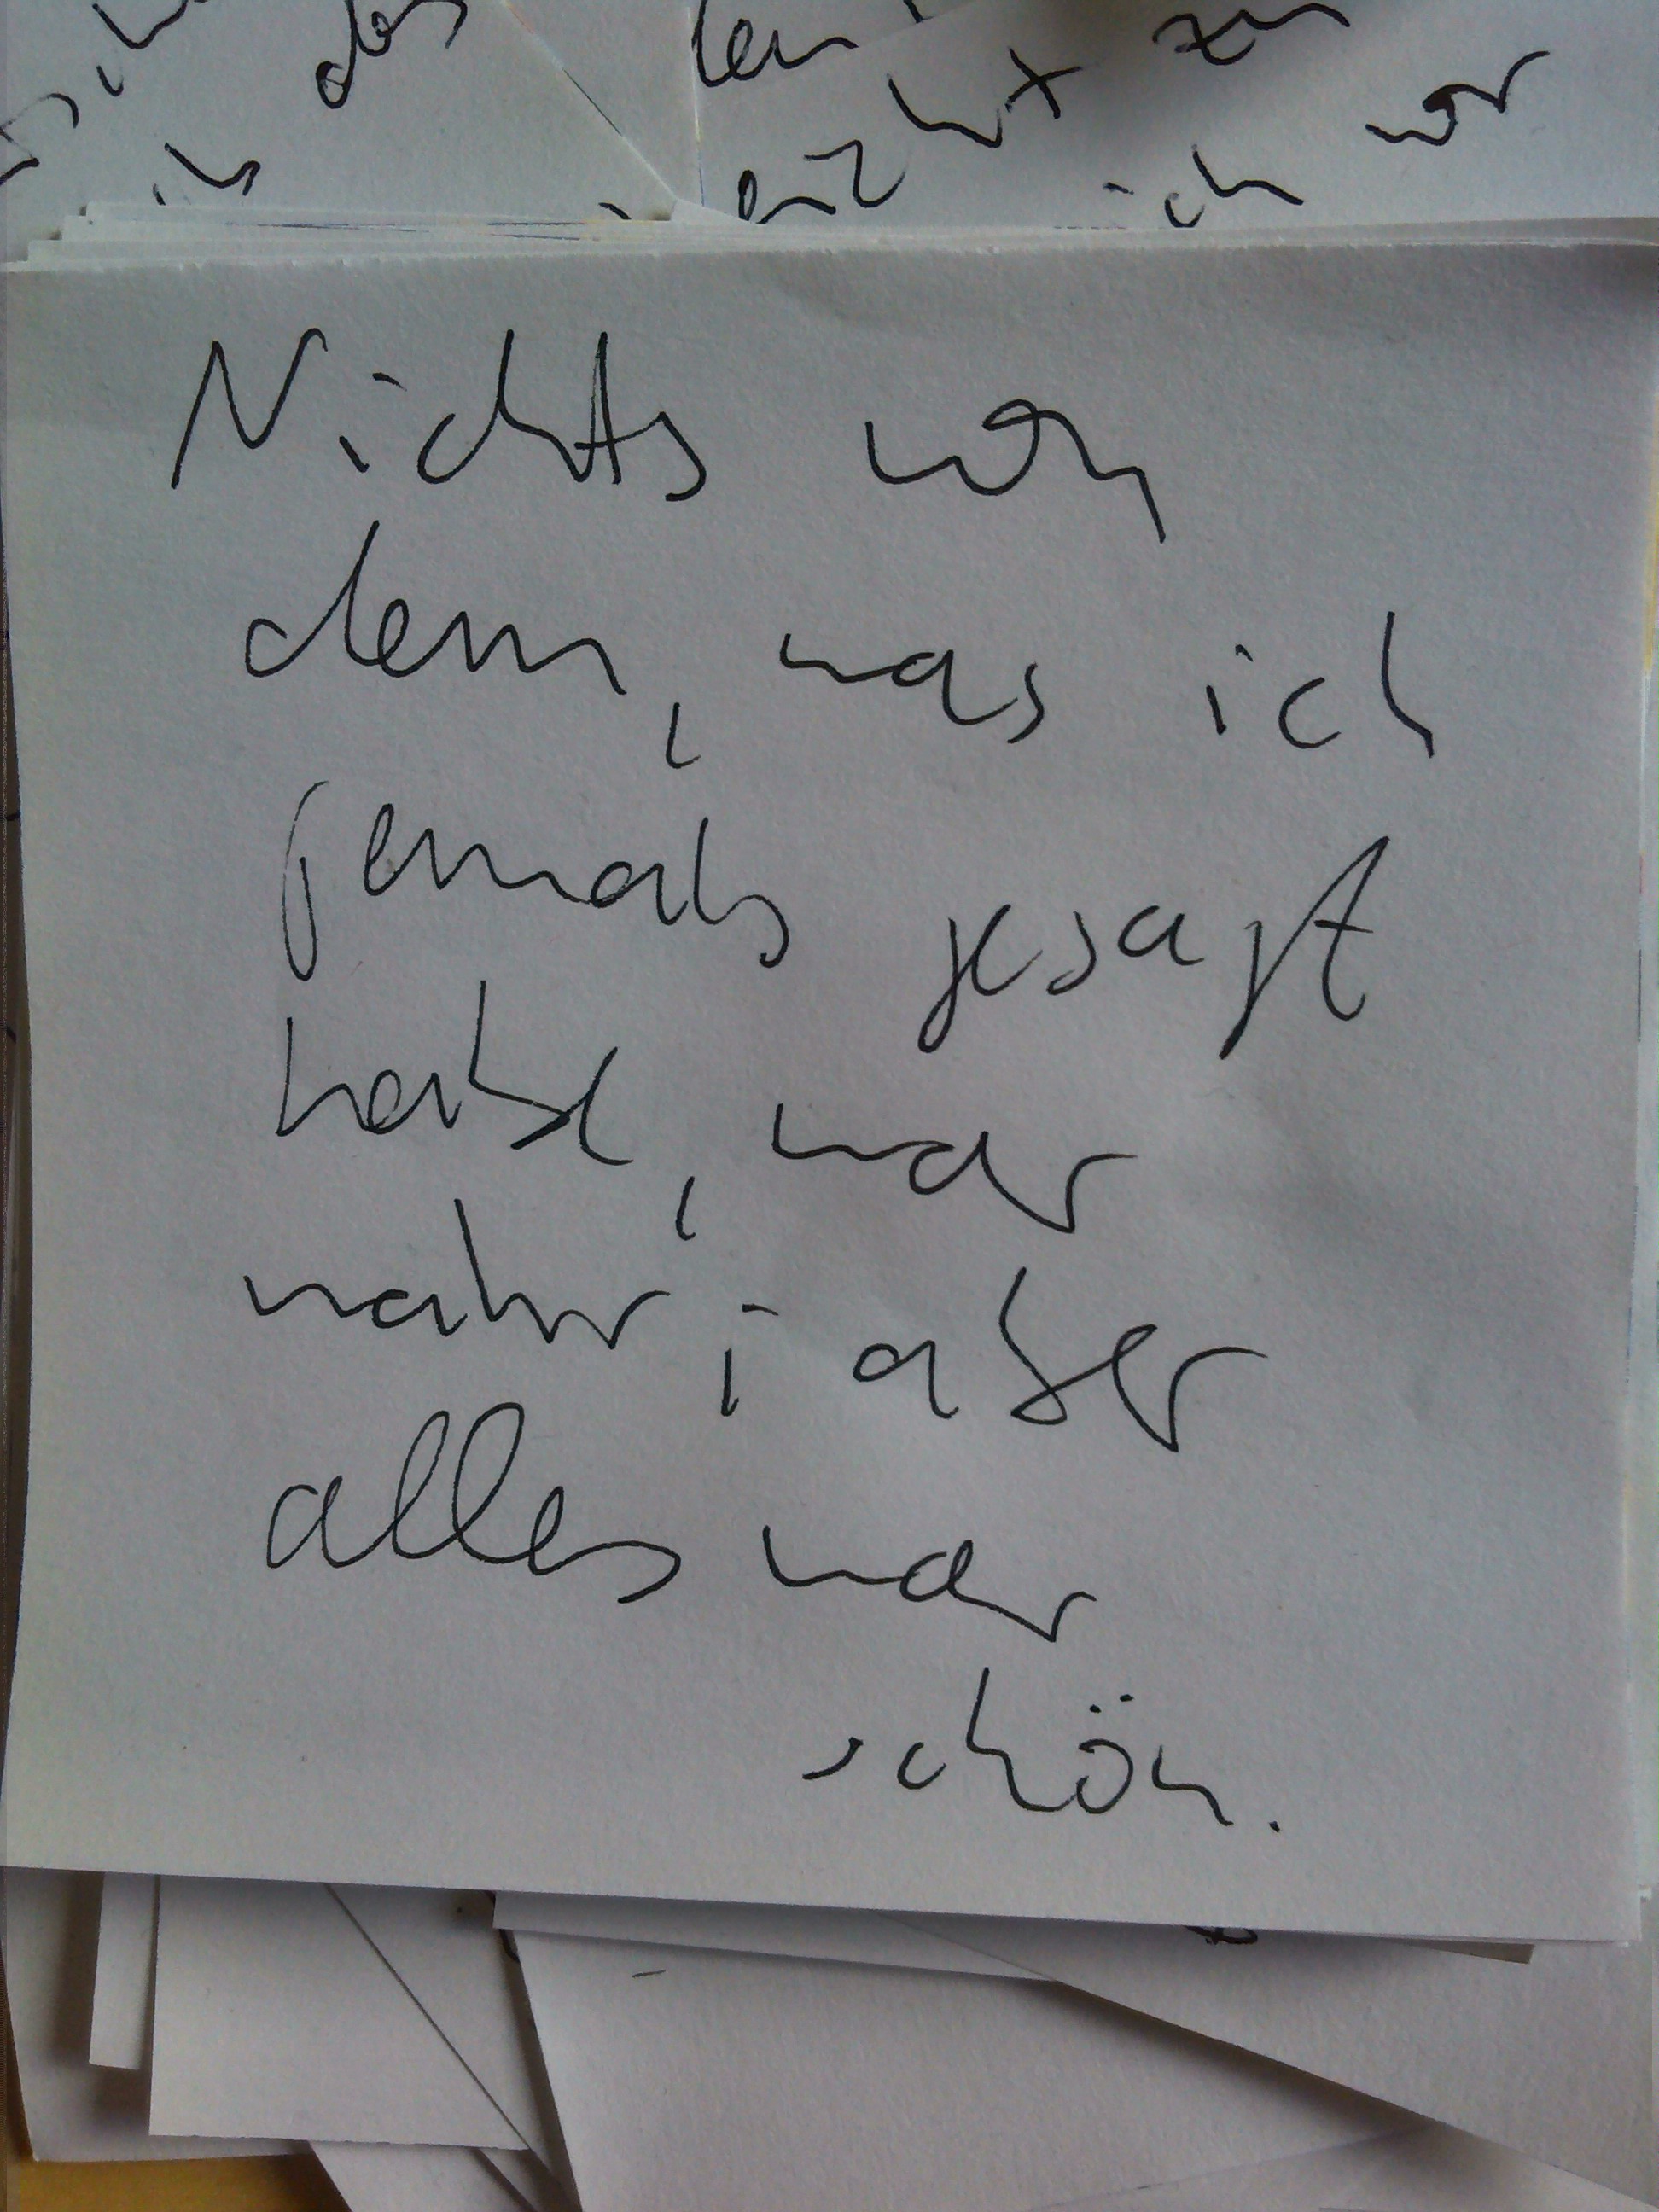 das
ich war
Nichts von
dem, was ich
jemals gesagt
habe, war
wahr; aber
alles war
schön.